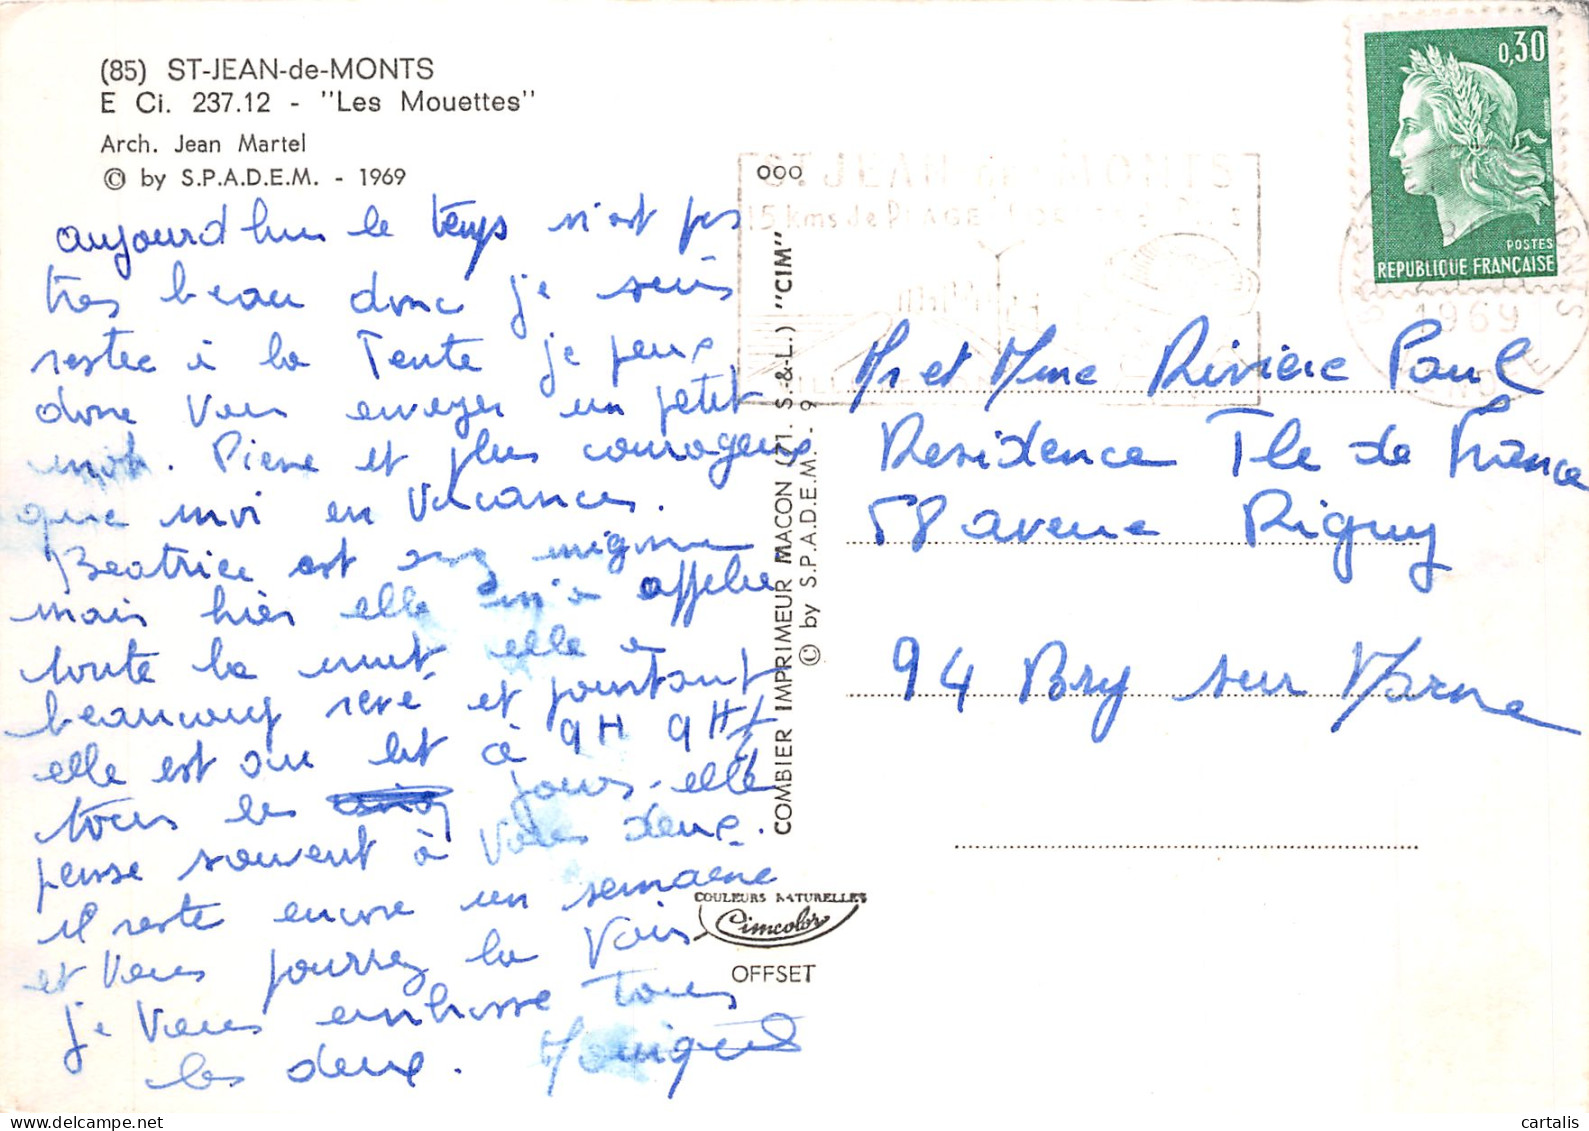 (85) ST-JEAN-de-MONTS
E Ci. 237.12 - "Les Mouettes"
Arch. Jean Martel
© by S.P.A.D.E.M. - 1969
aujourd'hui le temps n'est pas
tres beau donc je suis
restee à la Tente je peux
donc vous envoyer un petit
mot. Pierre et plus courageux
que moi en vacances.
Beatrice est mignonne
mais hier elle m'a appelée
toute la nuit elle a
beaucoup revé et pourtant
elle est au lit à 9H 9H½
tous les jours. elle
pense souvent à vous deux.
il reste encore un semaine
et vous pourrez la voir
je vous embrasse tous
les deux. Monique
ooo
COMBIER IMPRIMEUR MACON (71. S.-&-L.) "CIM"
© by S.P.A.D.E.M. - 9
COULEURS NATURELLES
Cimcolor
OFFSET
ST JEAN de MONTS
15 kms de PLAGE
0,30
POSTES
REPUBLIQUE FRANÇAISE
1969
Mr et Mme Rivière Paul
Residence Ile de France
58 avenue Riguy
94 Bry sur Marne
cartalis